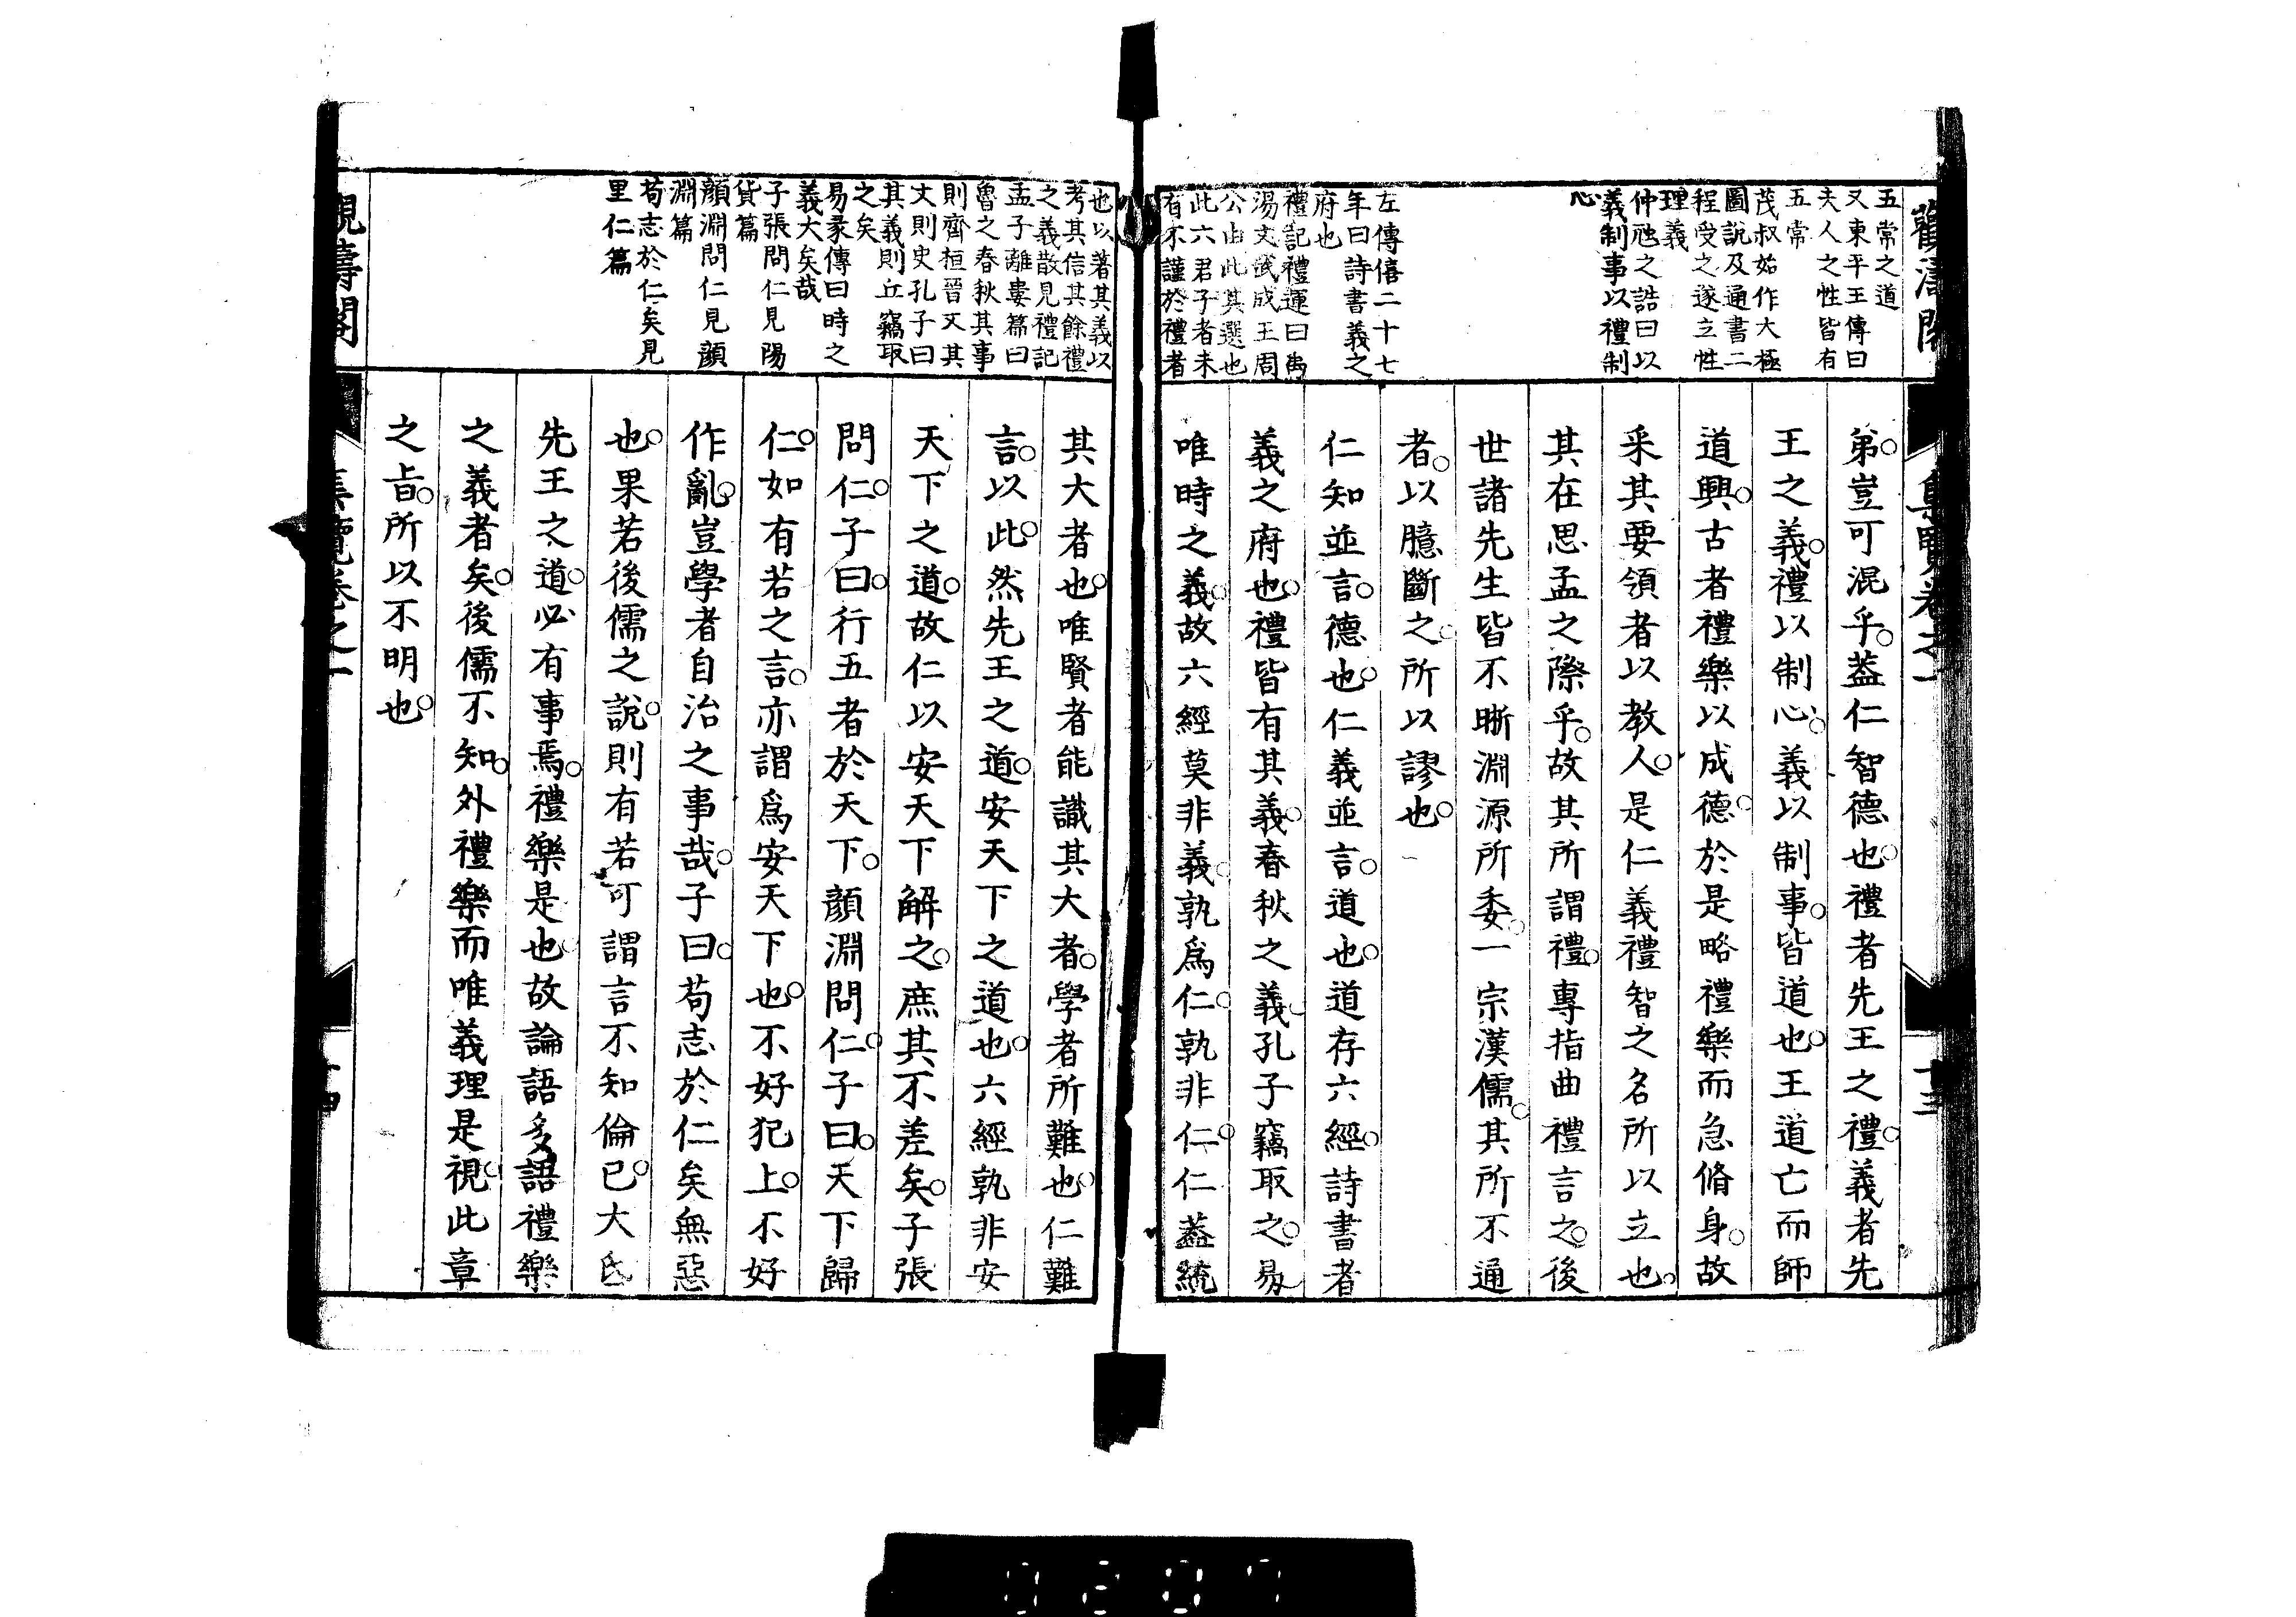 五常之道
又東平王傳曰
夫人之性皆有
五常
茂叔始作大極
圖說及通書二
程受之遂立性
理義
仲虺之誥曰以
義制事以禮制
心
左傳僖二十七
年曰詩書義之
府也
禮記禮運曰禹
湯文武成王周
公由此其選也
此六君子者未
有不謹於禮者
弟豈可混乎蓋仁智德也禮者先王之禮義者先
王之義禮以制心義以制事皆道也王道亡而師
道興古者禮樂以成德於是略禮樂而急脩身故
采其要領者以教人是仁義禮智之名所以立也
其在思孟之際乎故其所謂禮專指曲禮言之後
世諸先生皆不晣淵源所委一宗漢儒其所不通
者以臆斷之所以謬也
仁知並言德也仁義並言道也道存六經詩書者
義之府也禮皆有其義春秋之義孔子竊取之易
唯時之義故六經莫非義孰爲仁孰非仁仁蓋統
十三
也以著其義以
考其信其餘禮
之義散見禮記
孟子離婁篇曰
魯之春秋其事
則齊桓晉文其
文則史孔子曰
其義則丘竊取
之矣
易彖傳曰時之
義大矣哉
子張問仁見陽
貨篇
顏淵問仁見顏
淵篇
苟志於仁矣見
里仁篇
其大者也唯賢者能識其大者學者所難也仁難
言以此然先王之道安天下之道也六經孰非安
天下之道故仁以安天下解之庶其不差矣子張
問仁子曰行五者於天下顏淵問仁子曰天下歸
仁如有若之言亦謂爲安天下也不好犯上不好
作亂豈學者自治之事哉子曰苟志於仁矣無惡
也果若後儒之說則有若可謂言不知倫已大氐
先王之道必有事焉禮樂是也故論語多語禮樂
之義者矣後儒不知外禮樂而唯義理是視此章
之旨所以不明也
觀濤閣
集覽卷之一